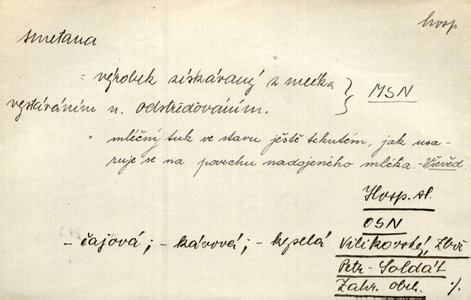 hosp
smetana
= výrobek získávaný z mléka
vystáváním n. odstřeďováním. } MSN
= mléčný tuk ve stavu ještě tekutém, jak usa-
zuje se na povrchu nadojeného mléka. - Vševěd
Hosp. sl.
OSN
- čajová; - kávová; - kyselá Velikovský, Zbož
Petr - Soldát
Zahr. obch. %